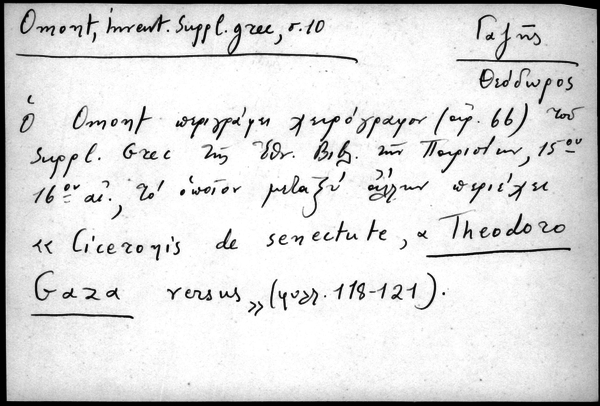 Omont, Invent. Suppl. grec, σ. 10
Γαζῆς
Θεόδωρος
Ὁ Omont περιγράφει χειρόγραφον (ἀρ. 66) τοῦ
Suppl. Grec τῆς Ἐθν. Βιβλ. τῶν Παρισίων, 15ου
16ου αἰ., τό ὁποῖον μεταξύ ἄλλων περιέχει
« Ciceronis de senectute, a Theodoro
Gaza versus» (φυλλ. 118-121).